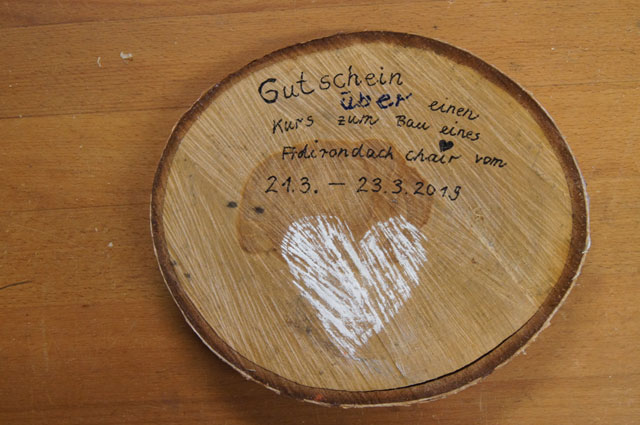 Gutschein
über einen
Kurs zum Bau eines
Adirondack chair vom
21.3. – 23.3.2019